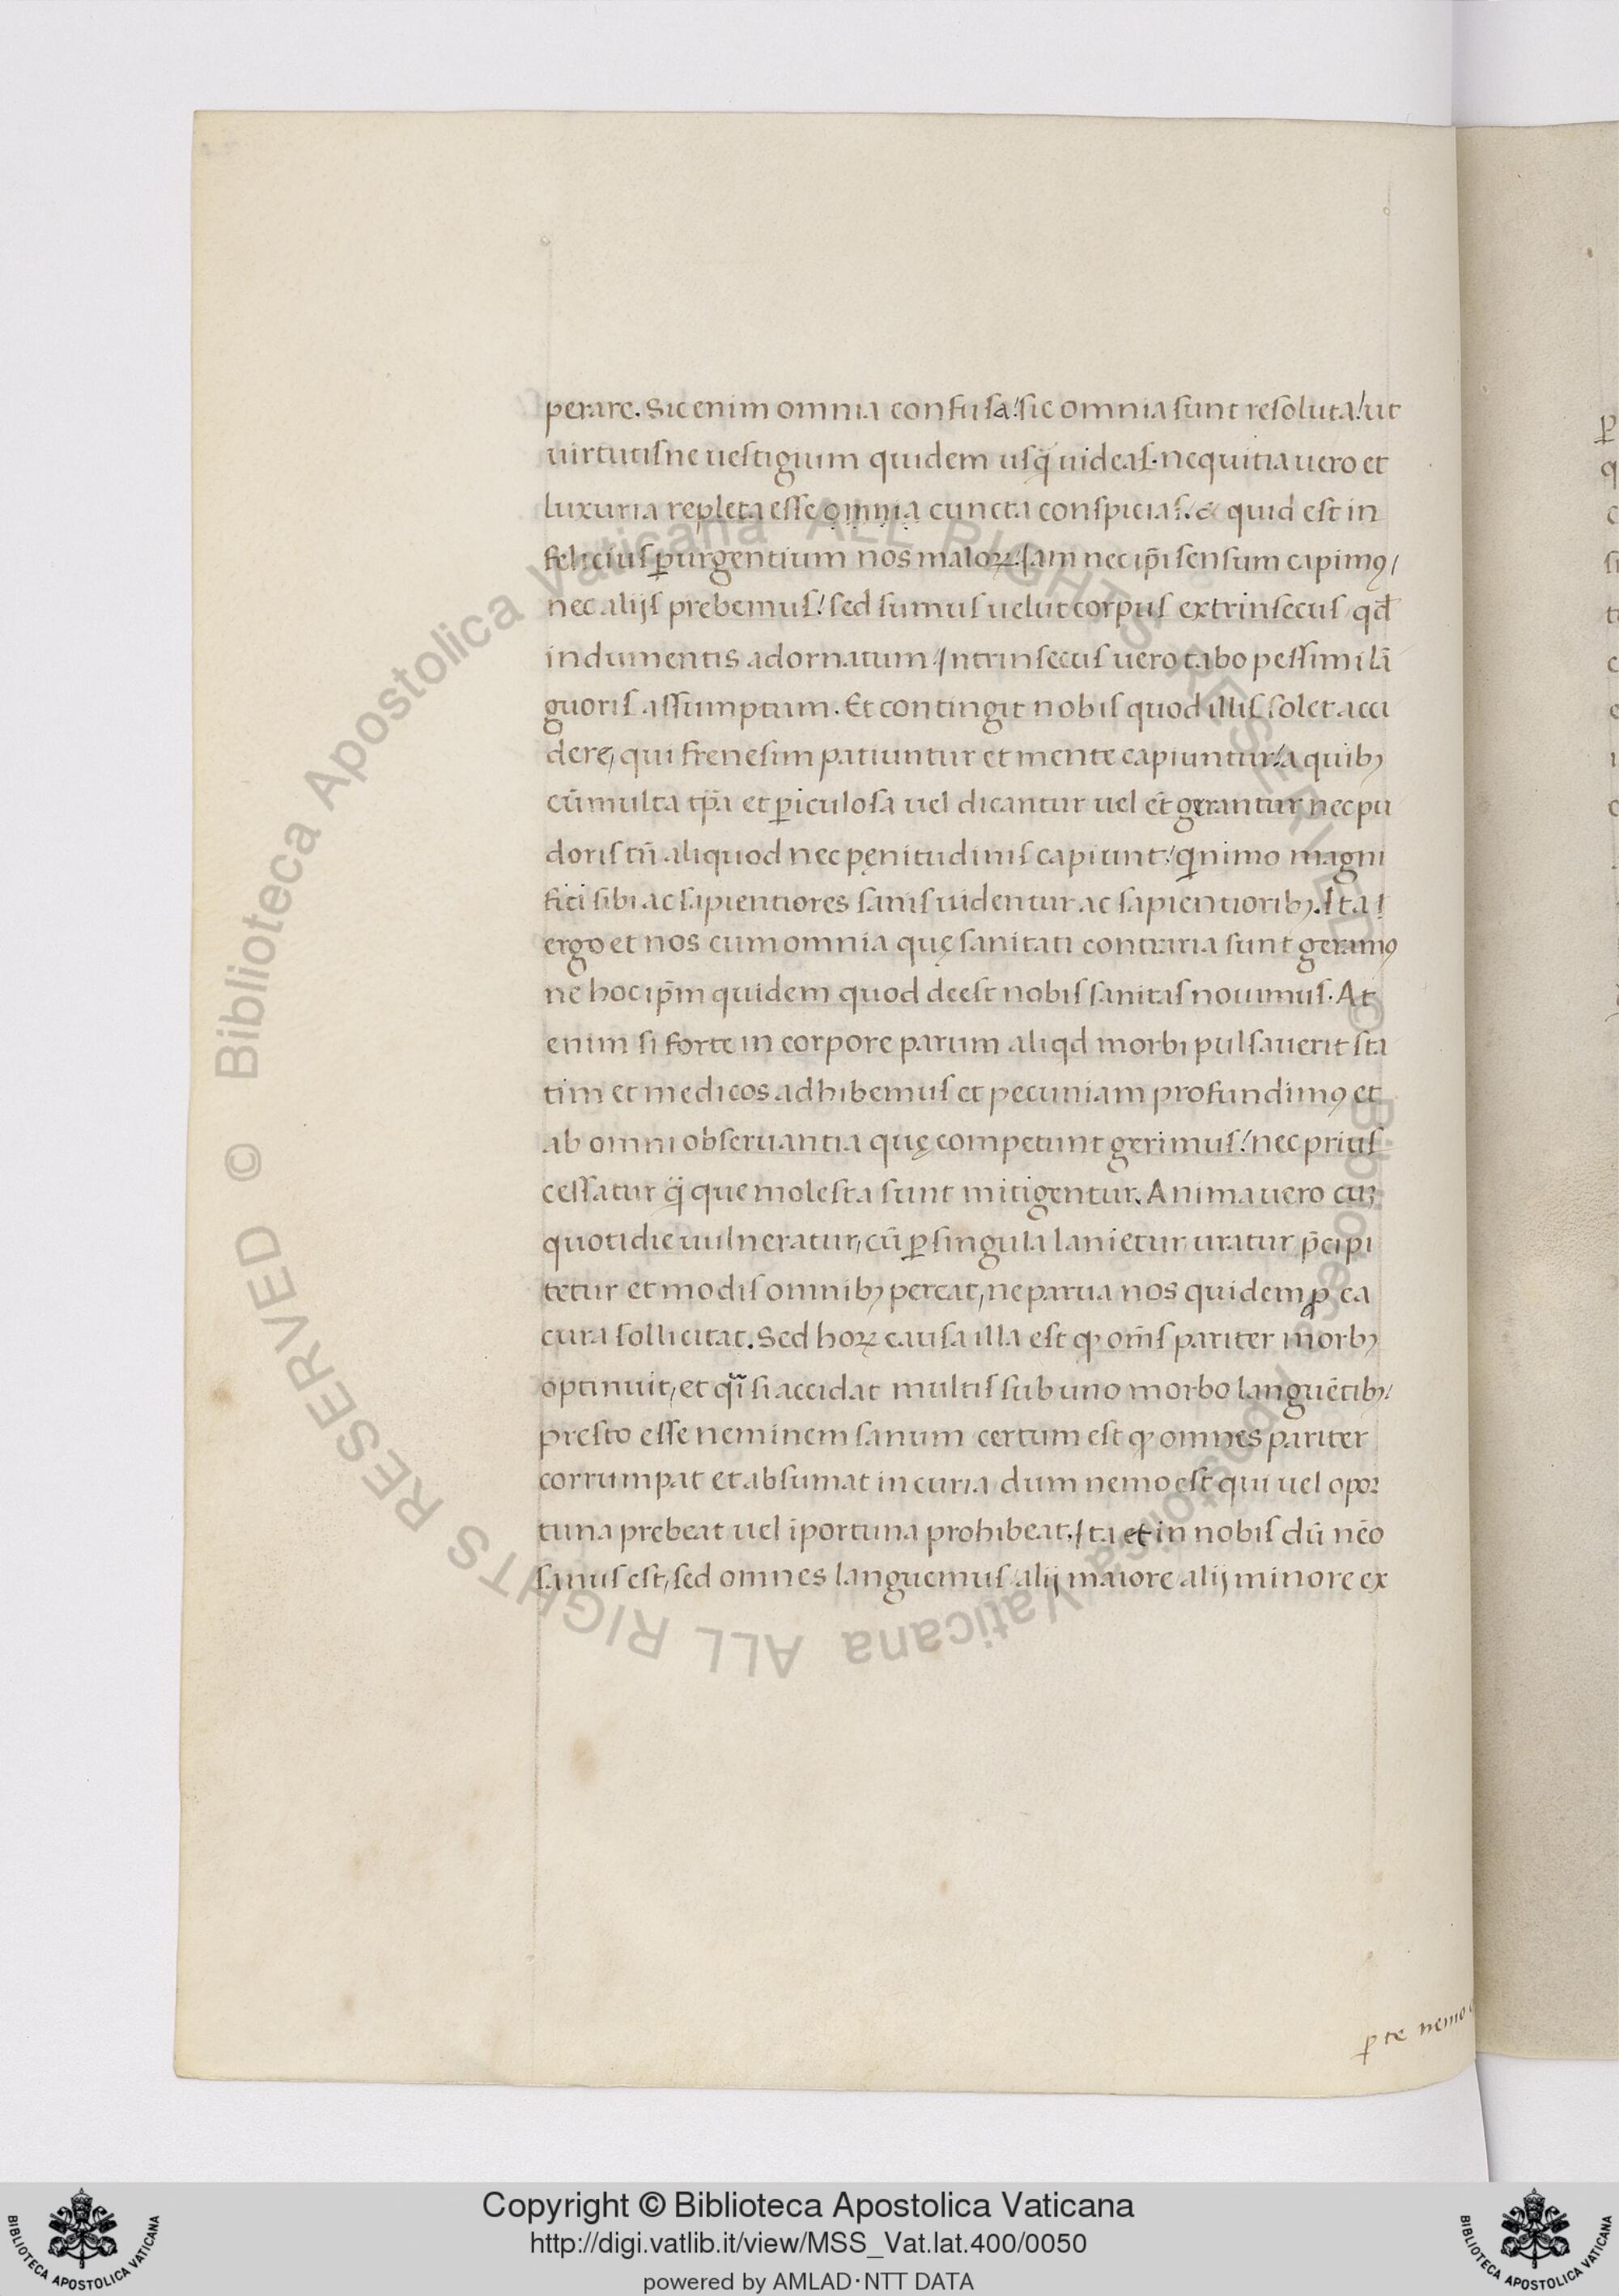 perare. Sic enim omnia confusa! sic omnia sunt resoluta! ut
uirtutis ne uestigium quidem usq̈ uideas. nequitia uero et
luxuria repleta esse omnia cuncta conspicias. & quid est in
felicius ꝑurgentium nos maloꝝ. Iam nec ip̄i sensum capimꝰ/
nec alijs prebemus! sed sumus uelut corpus extrinsecus qđ
indumentis adornatum. Intrinsecus uero tabo pessimi lā
guoris assumptum. Et contingit nobis quod illis solet acci
dere, qui frenesim patiuntur et mente capiuntur! a quibꝫ
cū multa tp̄a et ꝑiculosa uel dicantur uel et̄ gerantur nec pu
doris tn̄ aliquod nec pęnitudinis capiunt! qͥnimo magni
fici sibi ac sapientiores sanis uidentur ac sapientioribꝫ. Ita!
ergo et nos cum omnia quę sanitati contraria sunt geramꝰ
ne hoc ip̄m quidem quod deest nobis sanitas nouimus. At
enim si forte in corpore parum aliqd morbi pulsauerit sta
tim et medicos adhibemus et pecuniam profundimꝰ et
ab omni obseruantia quę competunt gerimus! nec prius
cessatur q̈ que molesta sunt mitigentur. Anima uero cuꝫ
quotidie uulneratur, cū ꝑ singula lanietur uratur p̄cipi
tetur et modis omnibꝫ pereat, ne parua nos quidem ꝓ ea
cura sollicitat. Sed hoꝝ causa illa est ꝙ om̄s pariter morbꝫ
optinuit, et qͣı̄ si accidat multis sub uno morbo languētibꝫ/
presto esse neminem sanum certum est ꝙ omnes pariter
corrumpat et absumat incuria dum nemo est qui uel opor
tuna prebeat uel īportuna prohibeat. Ita et in nobis dū nēo
sanus est, sed omnes languemus alij maiore alij minore ex
ꝑ te nemo
© Biblioteca Apostolica Vaticana ALL RIGHTS RESERVED © Biblioteca Apostolica Vaticana ALL RIGHTS RESERVED
Copyright © Biblioteca Apostolica Vaticana
http://digi.vatlib.it/view/MSS_Vat.lat.400/0050
powered by AMLAD·NTT DATA
BIBLIOTECA APOSTOLICA VATICANA
BIBLIOTECA APOSTOLICA VATICANA